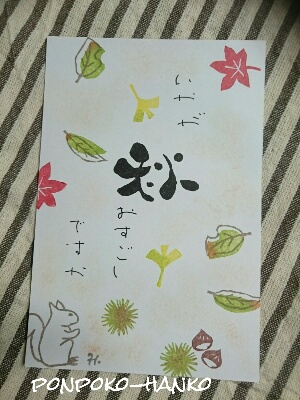 いかが
秋
おすごし
ですか
み.
PONPOKO-HANKO